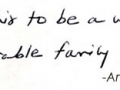 is to be a
able family
-An